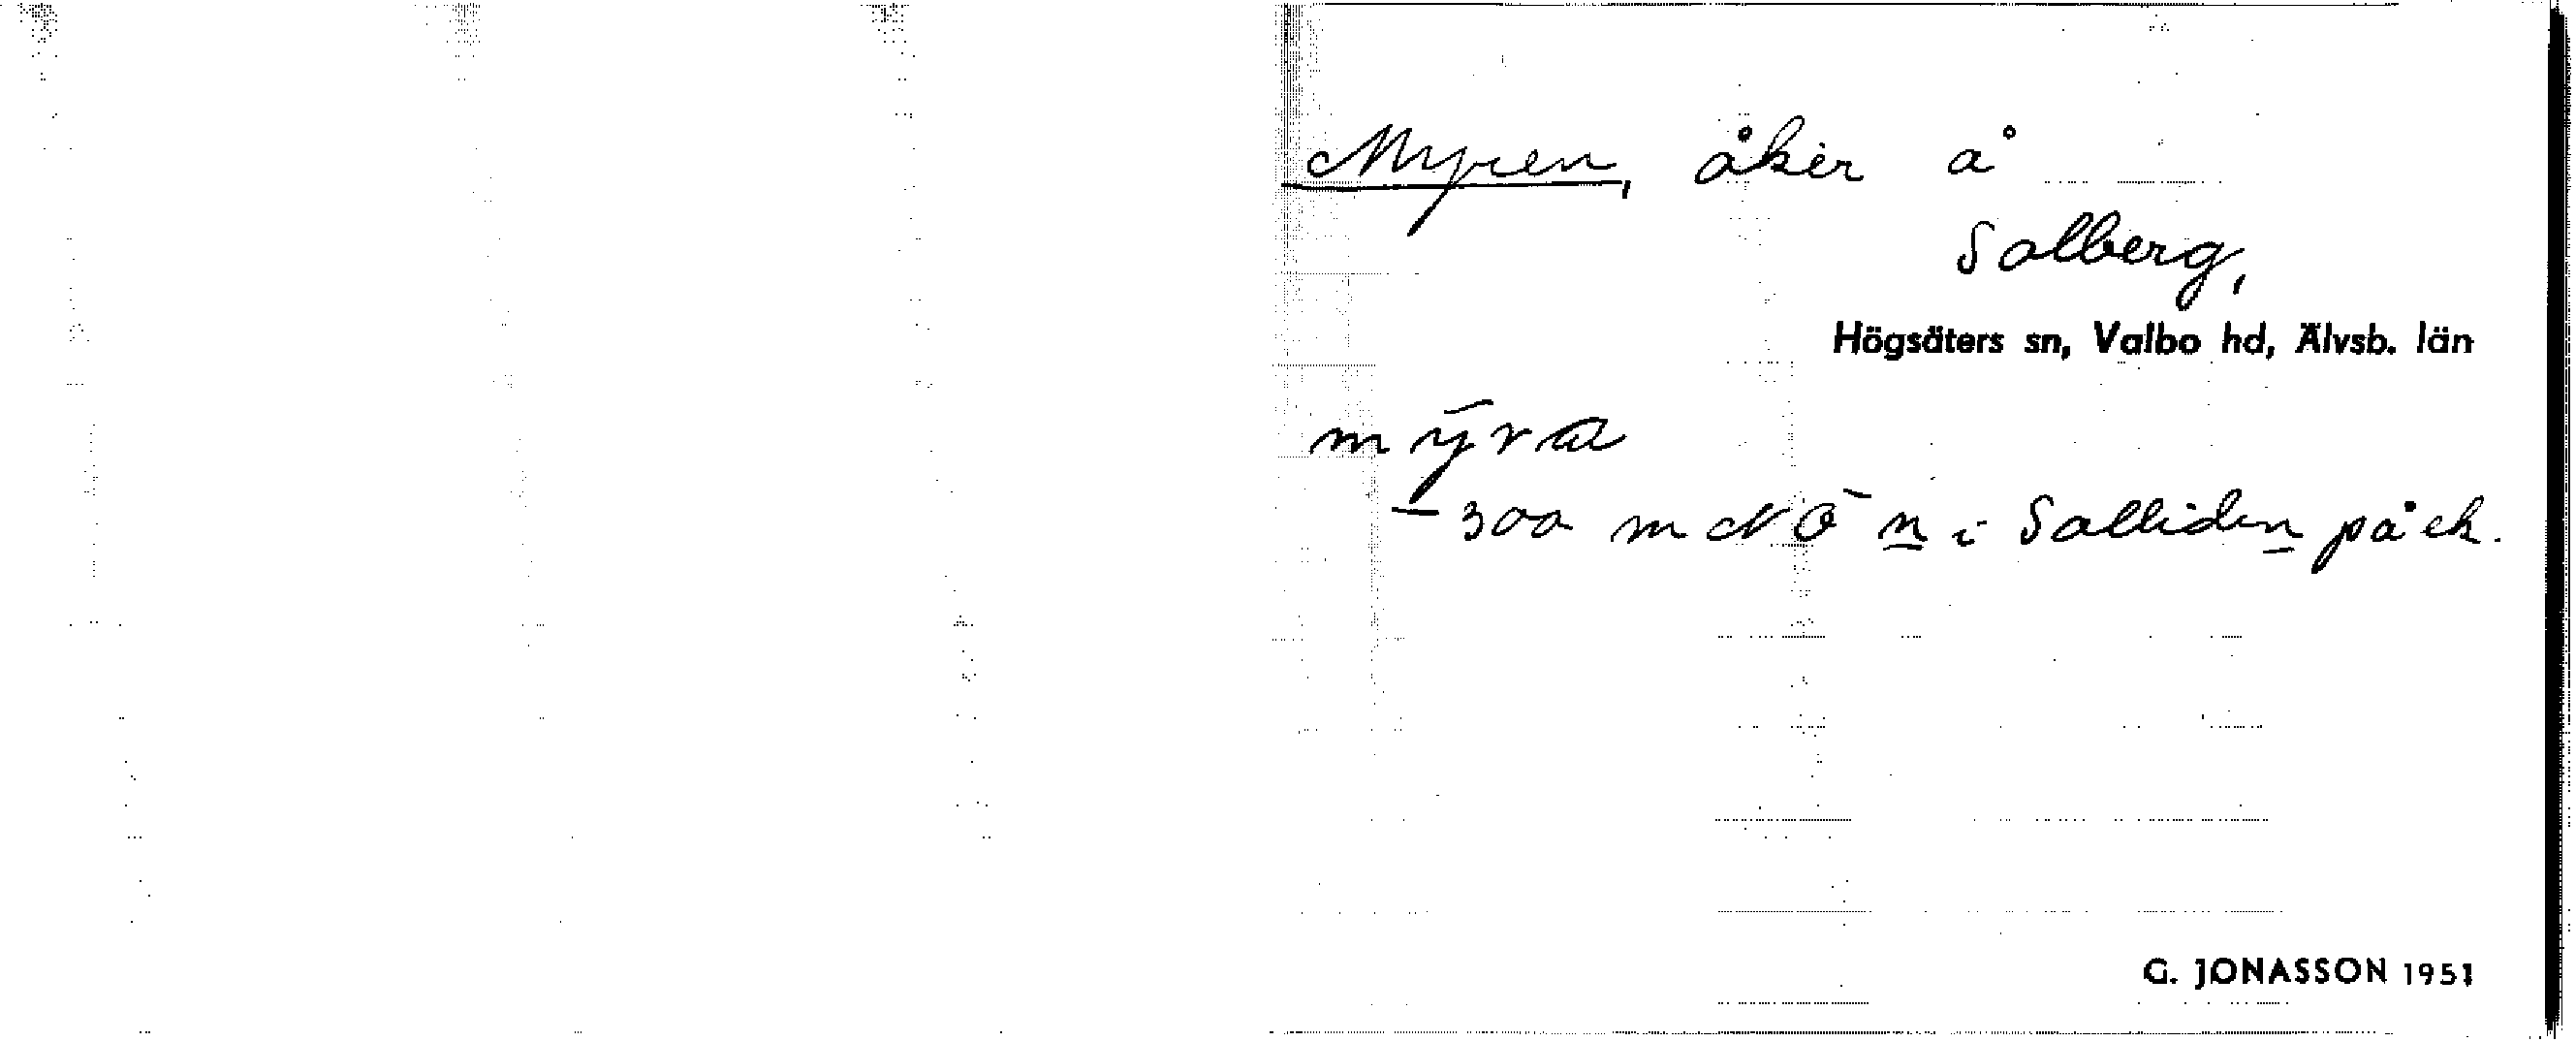 Myren, åker å
Solberg,
Högsäters sn, Valbo hd, Älvsb. län
mȳra
300 m NÖ n i Solliden på ek.
G. JONASSON 1951